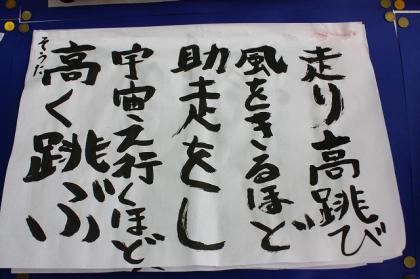 走り高跳び
風をきるほど
助走をし
宇宙え行くほど
高く跳ぶ
そうた